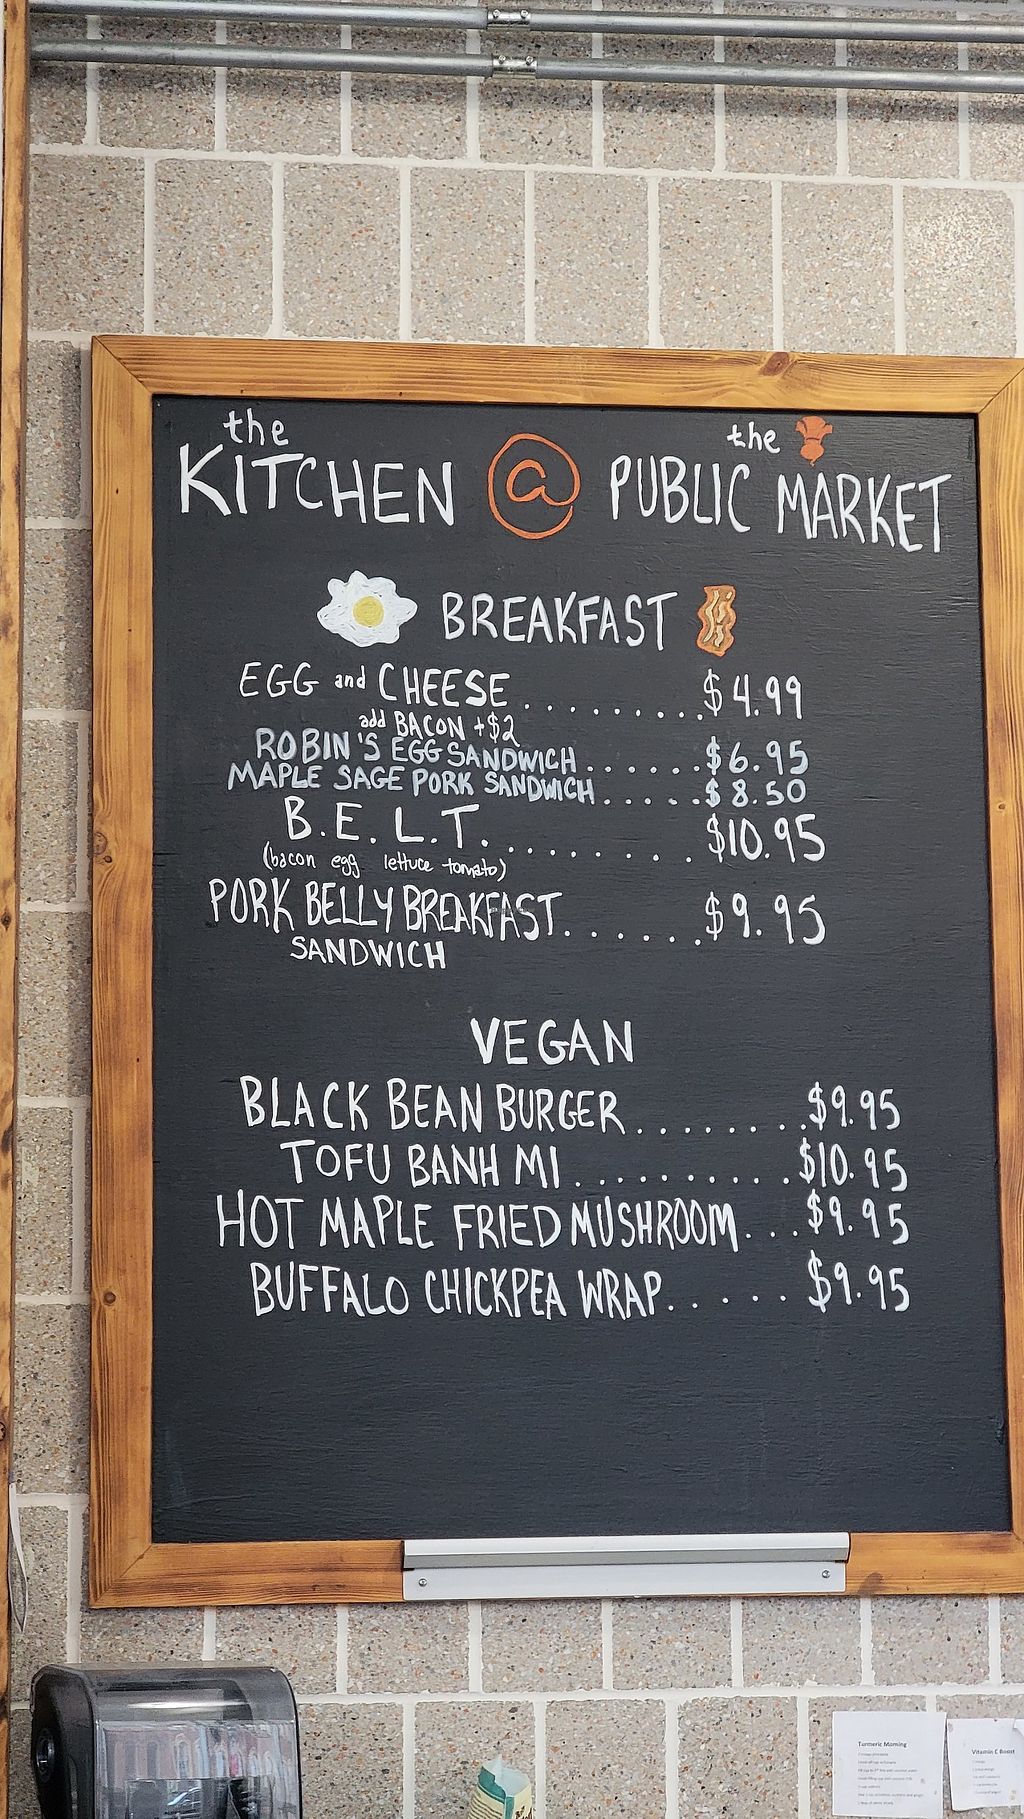 the the
KITCHEN @ PUBLIC MARKET
BREAKFAST
EGG and CHEESE . . . . . . . . . $4.99
add BACON +$2
ROBIN'S EGG SANDWICH . . . . . . $6.95
MAPLE SAGE PORK SANDWICH . . . . . $8.50
B.E.L.T. . . . . . . . . $10.95
(bacon egg lettuce tomato)
PORK BELLY BREAKFAST . . . . . . $9.95
SANDWICH
VEGAN
BLACK BEAN BURGER . . . . . . . . $9.95
TOFU BANH MI . . . . . . . . . . $10.95
HOT MAPLE FRIED MUSHROOM . . . $9.95
BUFFALO CHICKPEA WRAP . . . . . . $9.95
Turmeric Morning
Vitamin C Boost